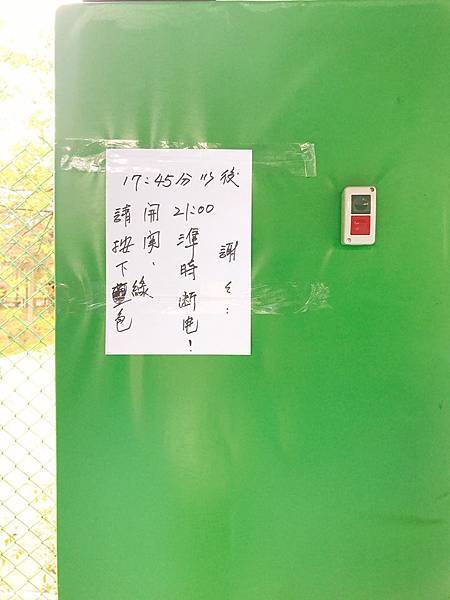 17:45分以後
請按下綠色
開関、
21:00
準時断电!
謝々: